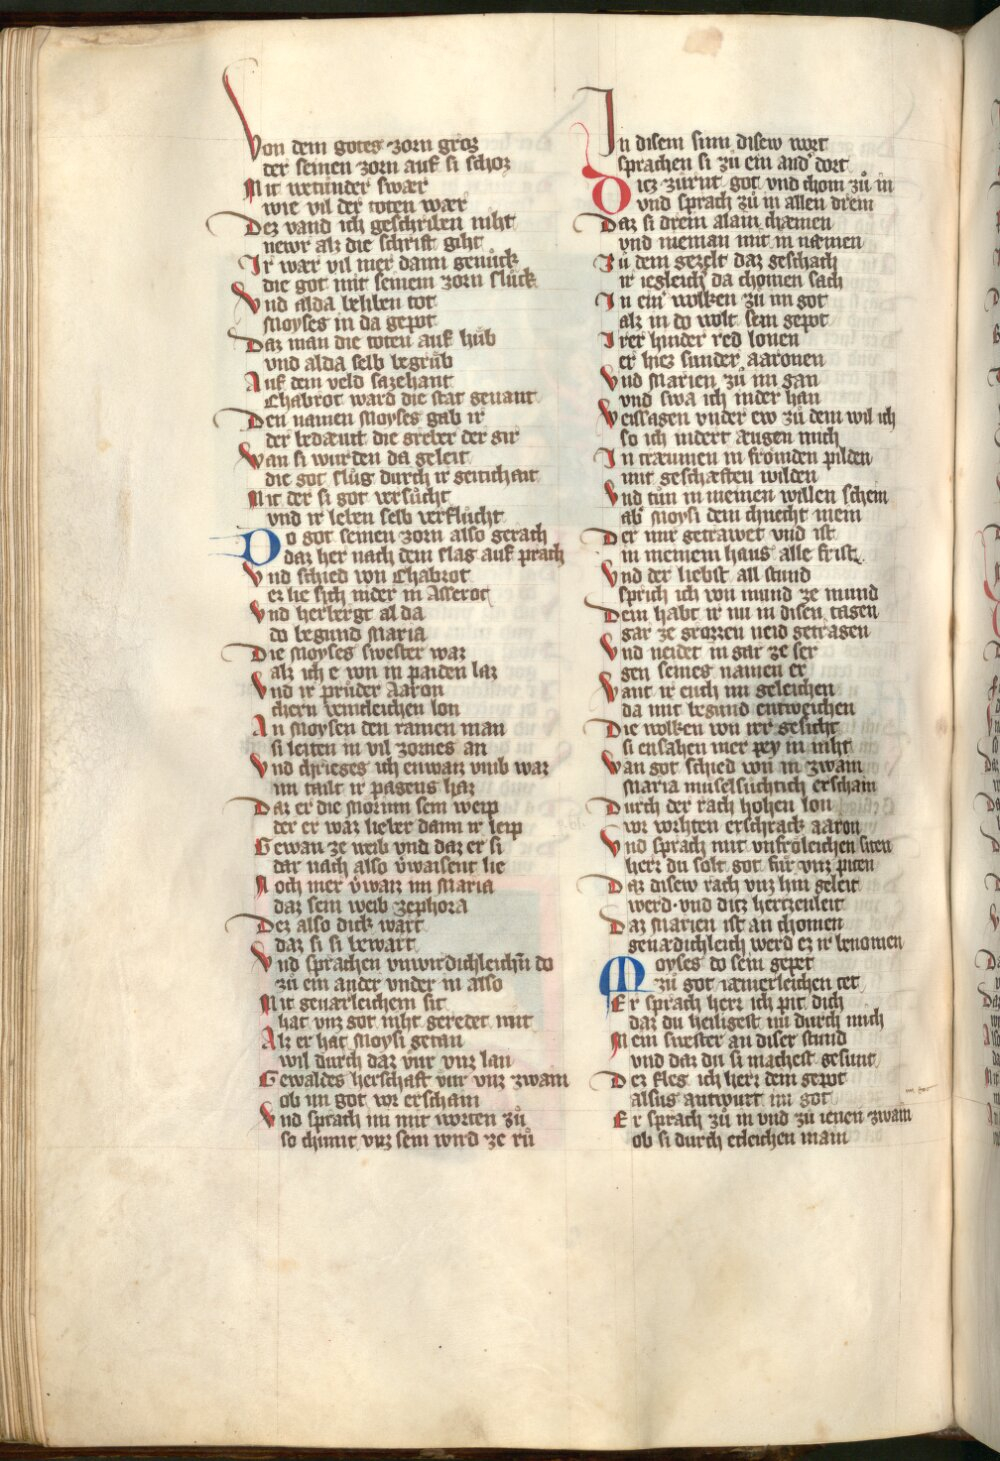 Von dem gotes zorn groz
der seinen zorn auf si schoz
Mit vrtunder swær
wie vil der toten wær
Dez vand ich geschriben niht
newr alz die schrift giht
Ir wær vil mer dann genůck
die got mit seinem zorn slůck
Vnd alda beliben tot
Moyses in da gepot
Daz man die toten auf hůb
vnd alda selb begrůb
Auf dem veld sazehant
Chabrot ward die stat genant
Den namen Moyses gab ir
der bedæut die greber der gir
Wan si wurden da geleit
die got slůg durch ir geitichait
Mit der si got versůcht
vnd ir leben selb verflůcht
Do got seinen zorn also gerach
daz her nach dem slag auf prach
Vnd schied von Chabrot
er lie sich nider in Asserot
Vnd herbergt al da
do begund Maria
Die Moyses swester waz
alz ich e von in paiden laz
Vnd ir průder Aaron
chern veintleichen lon
An Moysen den rainen man
si leiten in vil zornes an
Vnd chrieges ich enwaiz vmb waz
im tailt ir pagens haz
Daz er die Morinn sein weip
der er waz lieber dann ir leip
Gewan ze weib vnd daz er si
dar nach also v̊waisent lie
Noch mer v̊waiz im Maria
daz sein weib zephora
Dez also dick wart
daz si si bewart
Vnd sprachen vnwirdichleichn̄ do
zů ein ander vnder in also
Mit geuarleichem sit
hat vnz got niht geredet mit
Alz er hat Moysi getan
wil durch daz vnr vnz lan
Gewaldes herschaft vnr vnz zwain
ob im got vor erschain
Vnd sprach im mit worten zů
so chimt vnz sein wird ze rů
In disem sinn disew wort
sprachen si zů ein and̾ dort
Diez zůrnt got vnd chom zů in
vnd sprach zů in allen drein
Daz si drein alain chæmen
vnd nieman mit in næmen
Zů dem gezelt daz geschach
ir iegleich da chomen sach
In ein̾ wolken zů im got
alz in do wolt sein gepot
Irer hinder red lonen
er hiez sunder aaronen
Vnd Marien zů im gan
vnd swa ich inder han
Weissagen vnder ew zů dem wil ich
so ich indert æugen mich
In træumen in frömden pilden
mit geschæften wilden
Vnd tůn in meinen willen schein
ab̾ Moysi dem chnecht mein
Der mir getrawet vnd ist
in meinem haus alle frist
Vnd der liebst all stund
sprich ich von mund ze mund
Dem habt ir nu in disen tagen
gar ze grozzen neid getragen
Vnd neidet in gar ze ser
gen seines namen er
Want ir euch im geleichen
da mit begund entweichen
Die wolken von irr gesicht
si ensahen mer pey in niht
Wan got schied von in zwain
Maria muselsüchtich erschain
Durch der rach hohen lon
vor vorhten erschrack aaron
Vnd sprach mit vnfröleichen siten
herr du solt got für vnz piten
Daz disew rach vnz hin geleit
werd vnd ditz hertzenleit
Daz Marien ist an chomen
genædichleich werd ez ir benomen
Moyses do sein gepet
zů got iæmerleichen tet
Er sprach herr ich pit dich
daz du heiligest nu durch mich
Mein swester an diser stund
vnd daz du si machest gesunt
Dez fleg ich herr dem gepot
alsus antwurt im got
Er sprach zů in vnd zu ienen zwain
ob si durch etleichen main